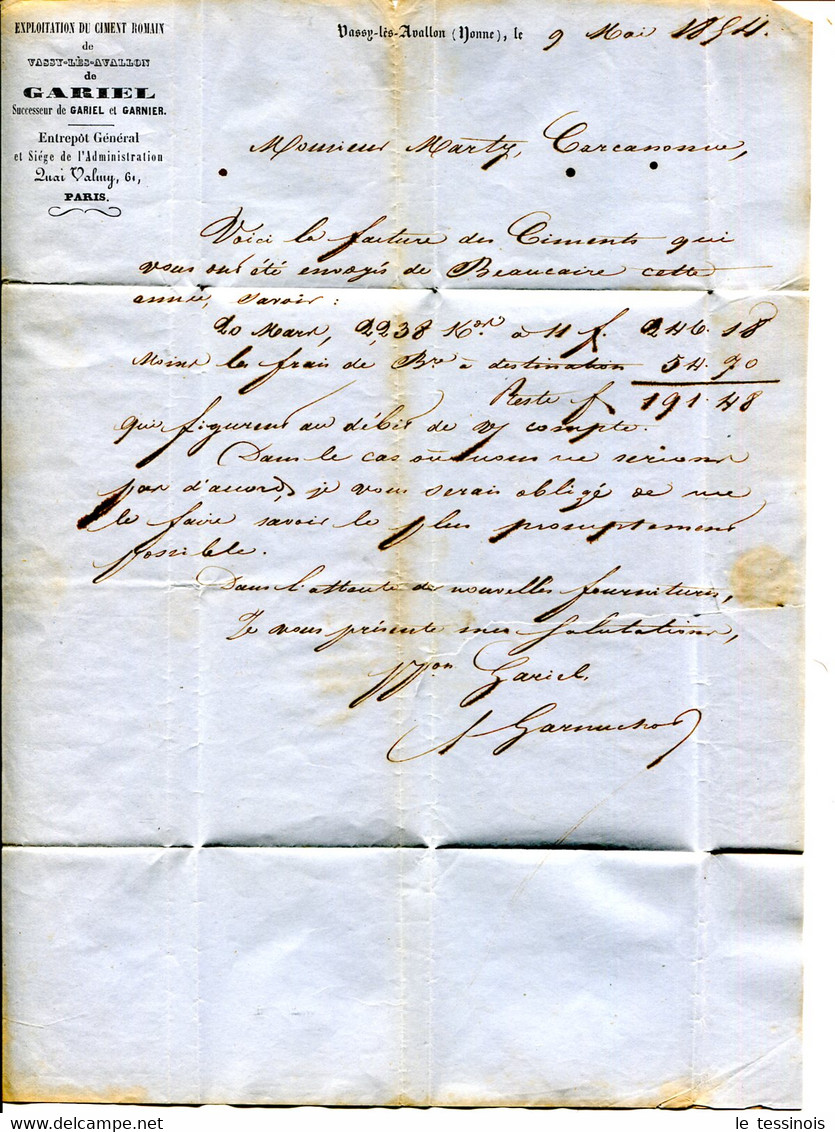 EXPLOITATION DU CIMENT ROMAIN
de
VASSY-LÈS-AVALLON
de
GARIEL
Successeur de GARIEL et GARNIER.
Entrepôt Général
et Siége de l'Administration
Quai Valmy, 61,
PARIS.
Vassy-lès-Avallon (Yonne), le 9 Mai 1854.
Monsieur Marty, Carcassonne,
Voici la facture des Ciments qui
vous ont été envoyés de Beaucaire cette
année, savoir :
20 Mars, 2238 Kos à 11 f. 246.18
Moins les frais de Bre à destination 54.90
Reste f 191.48
qui figurent au débit de v/ compte.
Dans le cas où nous ne serions
pas d'accord, je vous serais obligé de me
le faire savoir le plus promptement
possible.
Dans l'attente de nouvelles fournitures,
Je vous présente mes salutations,
Gariel.
le tessinois